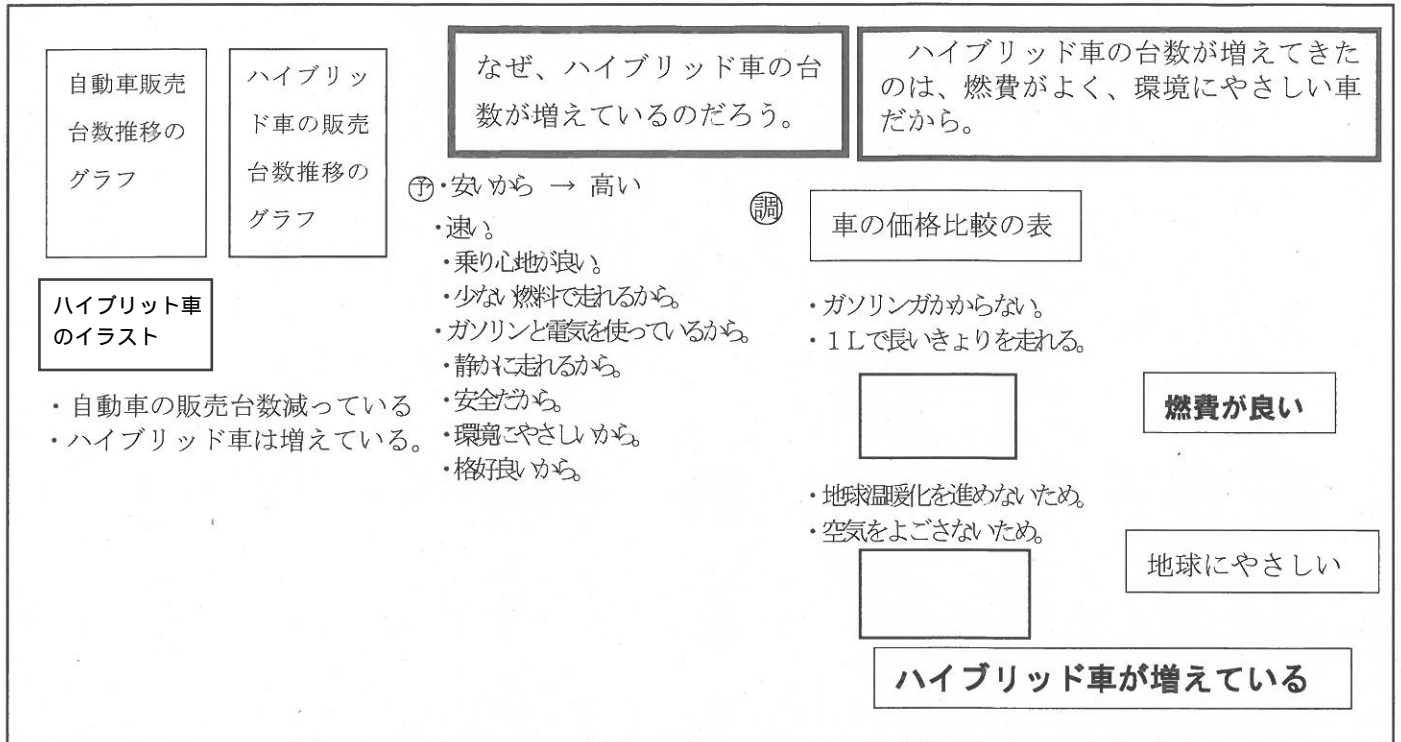 自動車販売
台数推移の
グラフ
ハイブリッ
ド車の販売
台数推移の
グラフ
ハイブリット車
のイラスト
・自動車の販売台数減っている
・ハイブリッド車は増えている。
なぜ、ハイブリッド車の台
数が増えているのだろう。
予・安いから → 高い
・速い。
・乗り心地が良い。
・少ない燃料で走れるから。
・ガソリンと電気を使っているから。
・静かに走れるから。
・安全だから。
・環境にやさしいから。
・格好良いから。
ハイブリッド車の台数が増えてきた
のは、燃費がよく、環境にやさしい車
だから。
調
車の価格比較の表
・ガソリンガかからない。
・１Ｌで長いきょりを走れる。
燃費が良い
・地球温暖化を進めないため。
・空気をよごさないため。
地球にやさしい
ハイブリッド車が増えている